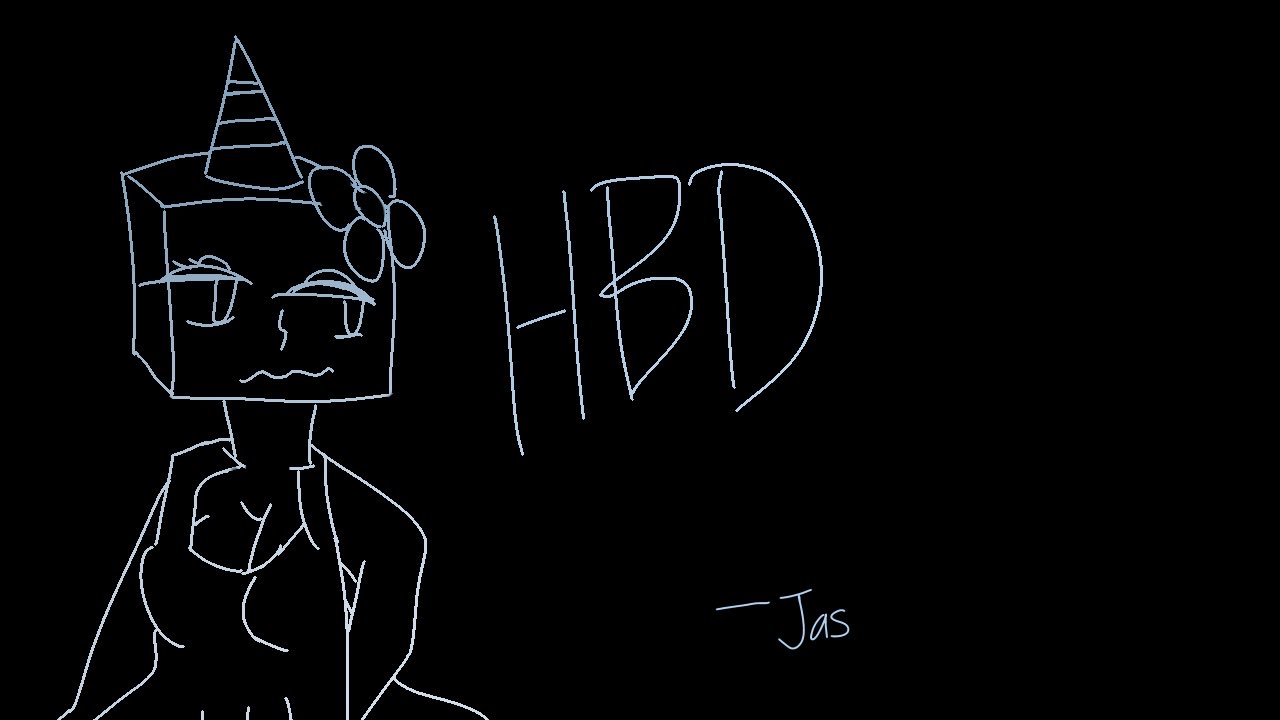 HBD
— Jas